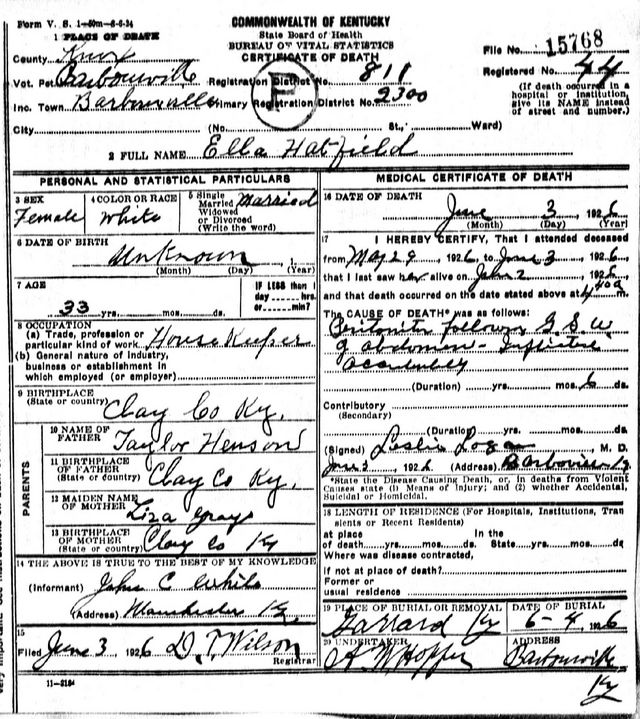 Form V. S. 1-50m-6-6-24
COMMONWEALTH OF KENTUCKY
State Board of Health
BUREAU OF VITAL STATISTICS
CERTIFICATE OF DEATH
1 PLACE OF DEATH
County Knox
File No. 15768
Vot. Pct. Barbourville Registration District No. 811
Registered No. 44
Inc. Town Barbourville Primary Registration District No. 2300
(If death occurred in a
hospital or institution,
give its NAME instead
of street and number.)
City (No. St., Ward)
F
2 FULL NAME Ella Hatfield
PERSONAL AND STATISTICAL PARTICULARS
3 SEX
Female
4 COLOR OR RACE
White
5 Single
Married
Widowed
or Divorced
(Write the word)
Married
6 DATE OF BIRTH
Unknown 1
(Month) (Day) (Year)
7 AGE
33 yrs. mos. ds.
IF LESS than 1
day hrs.
or min?
8 OCCUPATION
(a) Trade, profession or
particular kind of work House Keeper
(b) General nature of industry,
business or establishment in
which employed (or employer)
9 BIRTHPLACE
(State or country) Clay Co Ky.
PARENTS
10 NAME OF
FATHER Taylor Henson
11 BIRTHPLACE
OF FATHER
(State or country) Clay Co Ky.
12 MAIDEN NAME
OF MOTHER Liza Grays
13 BIRTHPLACE
OF MOTHER
(State or country) Clay Co Ky
14 THE ABOVE IS TRUE TO THE BEST OF MY KNOWLEDGE
(Informant) John C White
(Address) Manchester Ky.
15
Filed June 3, 1926 D. T. Wilson
Registrar
11-3184
MEDICAL CERTIFICATE OF DEATH
16 DATE OF DEATH
June 3 1926
(Month) (Day) (Year)
17
I HEREBY CERTIFY, That I attended deceased
from May 29 1926, to June 3, 1926
that I last saw her alive on 2, 1926
and that death occurred on the date stated above at m.
The CAUSE OF DEATH* was as follows:
follows G. S. W
of abdomen -
(Duration) yrs. mos. 6 ds.
Contributory
(Secondary)
(Duration) yrs. mos. ds.
(Signed) Leslie Logan M. D.
June 3, 1926 (Address) Barbourville Ky
*State the Disease Causing Death, or, in deaths from Violent
Causes state (1) Means of Injury; and (2) whether Accidental,
Suicidal or Homicidal.
18 LENGTH OF RESIDENCE (For Hospitals, Institutions, Tran
sients or Recent Residents)
at place In the
of death yrs. mos. ds. State yrs. mos. ds.
Where was disease contracted,
if not at place of death?
Former or
usual residence
19 PLACE OF BURIAL OR REMOVAL
Garrard Ky
DATE OF BURIAL
6-4, 1926
20 UNDERTAKER
Hopper
ADDRESS
Barbourville
Ky